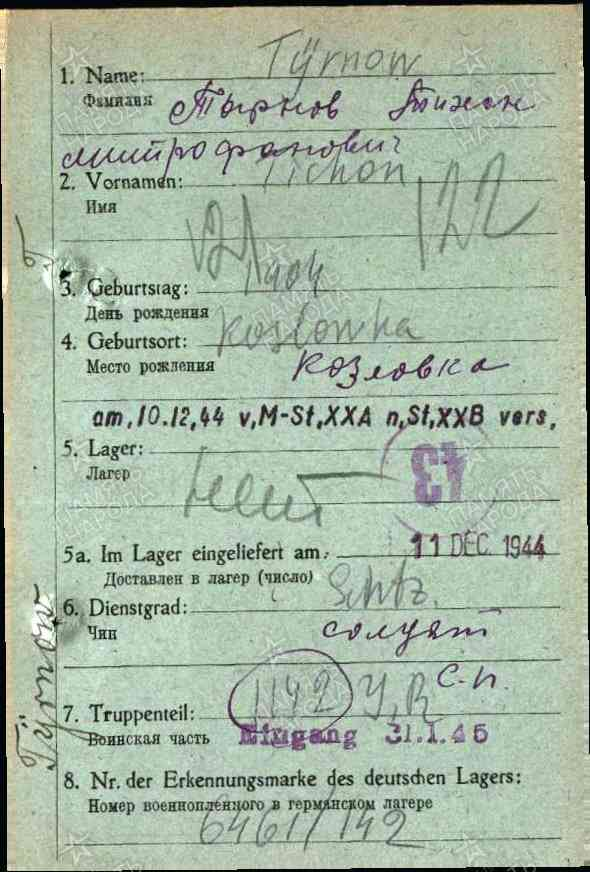 Tyrnow
1. Name:
Фамилия Тырнов Тихон
Митрофанович
2. Vornamen: Tichon
Имя
122
3. Geburtstag: 1904
День рождения
4. Geburtsort: Koslowka
Место рождения Козловка
am, 10.12,44 v, M-St, XXA n, St, XXB vers,
5. Lager:
Лагер
43
5a. Im Lager eingeliefert am: 11 DEC. 1944
Доставлен в лагер (число)
6. Dienstgrad: Schtz.
Чин солдат
1142 J.R. С.П.
7. Truppenteil:
Воинская часть Eingang 31.1.45
8. Nr. der Erkennungsmarke des deutschen Lagers:
Номер военнопленного в германском лагере
6461/142
Tyrnow
ПАМЯТЬ НАРОДА